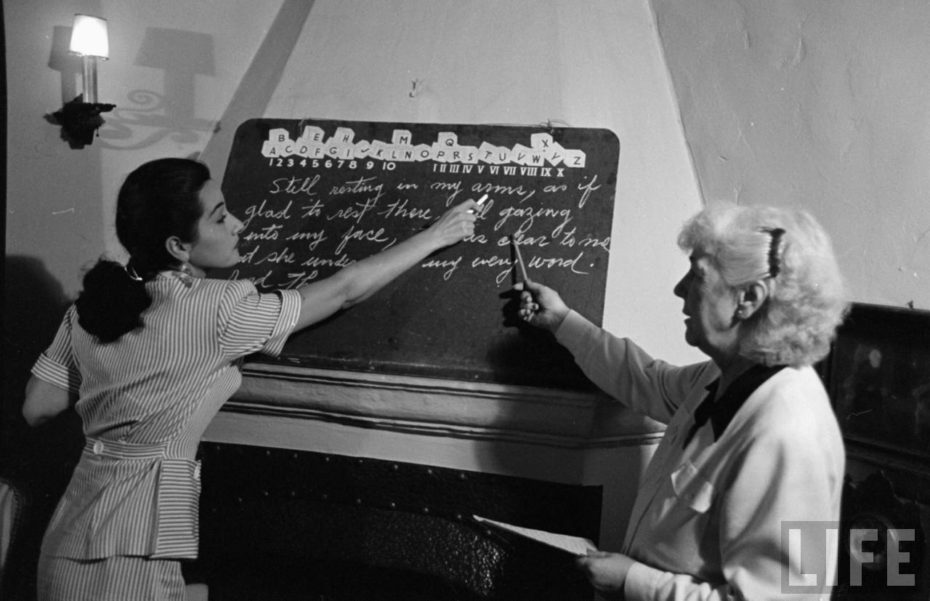 B E H M Q X
A C D F G I J K L N O P R S T U V W Y Z
1 2 3 4 5 6 7 8 9 10 I II III IV V VI VII VIII IX X
Still resting in my arms, as if
glad to rest there gazing
into my face, is clear to me
she my every word.
LIFE